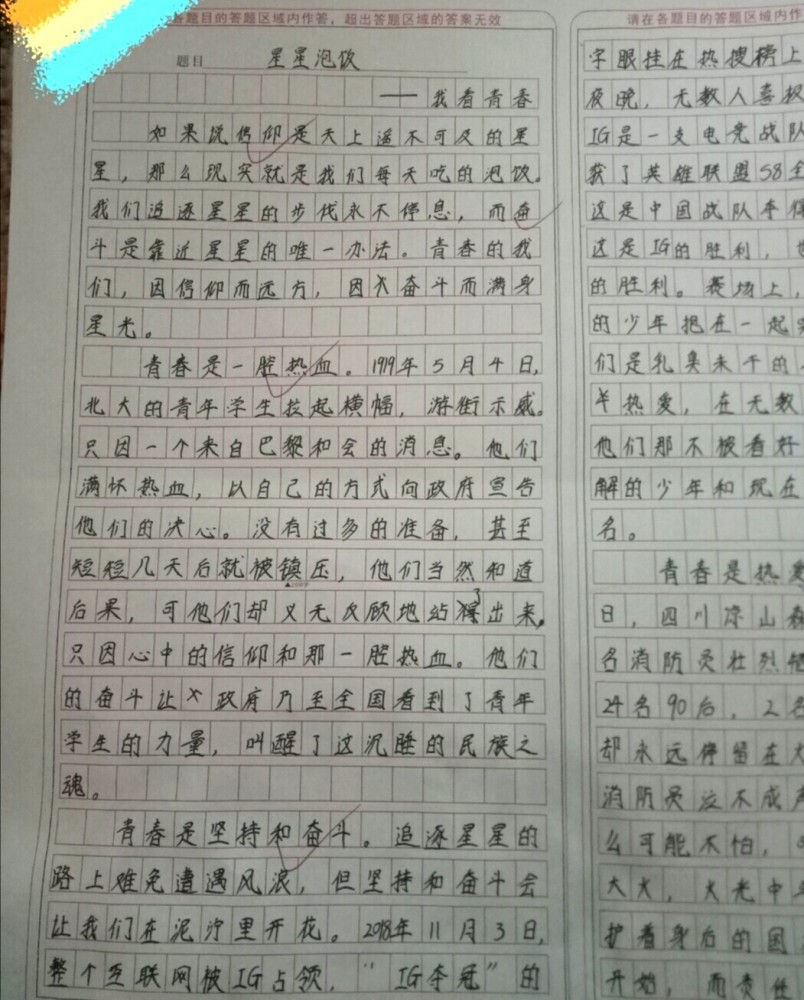 各题目的答题区域内作答，超出答题区域的答案无效
题目 星星泡饭
——我看青春
如果说信仰是天上遥不可及的星
星，那么现实就是我们每天吃的泡饭。
我们追逐星星的步伐永不停息，而奋
斗是靠近星星的唯一办法。青春的我
们，因信仰而远方，因奋斗而满身
星光。
青春是一腔热血。1919年5月4日，
北大的青年学生拉起横幅，游街示威。
只因一个来自巴黎和会的消息。他们
满怀热血，以自己的方式向政府宣告
他们的决心。没有过多的准备，甚至
短短几天后就被镇压，他们当然知道
后果，可他们却义无反顾地站了出来。
只因心中的信仰和那一腔热血。他们
的奋斗让政府乃至全国看到了青年
学生的力量，叫醒了这沉睡的民族之
魂。
青春是坚持和奋斗。追逐星星的
路上难免遭遇风浪，但坚持和奋斗会
让我们在泥泞里开花。2018年11月3日，
整个互联网被IG占领，“IG夺冠”的
请在各题目的答题区域内作
字眼挂在热搜榜上
夜晚，无数人喜极
IG是一支电竞战队
获了英雄联盟S8全
这是中国战队夺得
这是IG的胜利，也
的胜利。赛场上，
的少年抱在一起
们是乳臭未干的
热爱，在无数
他们那不被看好
解的少年和现在
名。
青春是热爱
日，四川凉山森
名消防员壮烈牺
24名90后，2名
却永远停留在大
消防员泣不成声
么可能不怕，
大火，火光中
护着身后的国
开始，而责任